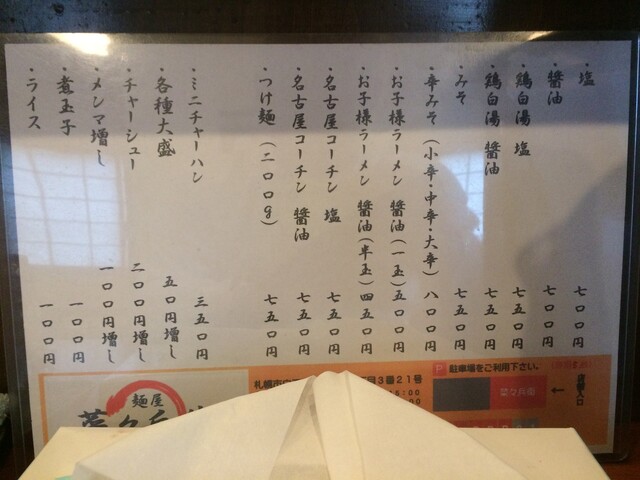 ・塩 七〇〇円
・醤油 七〇〇円
・鶏白湯 塩 七五〇円
・鶏白湯 醤油 七五〇円
・みそ 七五〇円
・辛みそ（小辛・中辛・大辛） 八〇〇円
・お子様ラーメン 醤油（一玉） 五〇〇円
・お子様ラーメン 醤油（半玉） 四五〇円
・名古屋コーチン 塩 七五〇円
・名古屋コーチン 醤油 七五〇円
・つけ麺（二〇〇g） 七五〇円
・ミニチャーハン 三五〇円
・各種大盛 五〇円増し
・チャーシュー 二〇〇円増し
・メンマ増し 一〇〇円増し
・煮玉子 一〇〇円
・ライス 一〇〇円
麺屋
札幌市
3番21号
P 駐車場をご利用下さい。
菜々兵衛
←
店舗入口